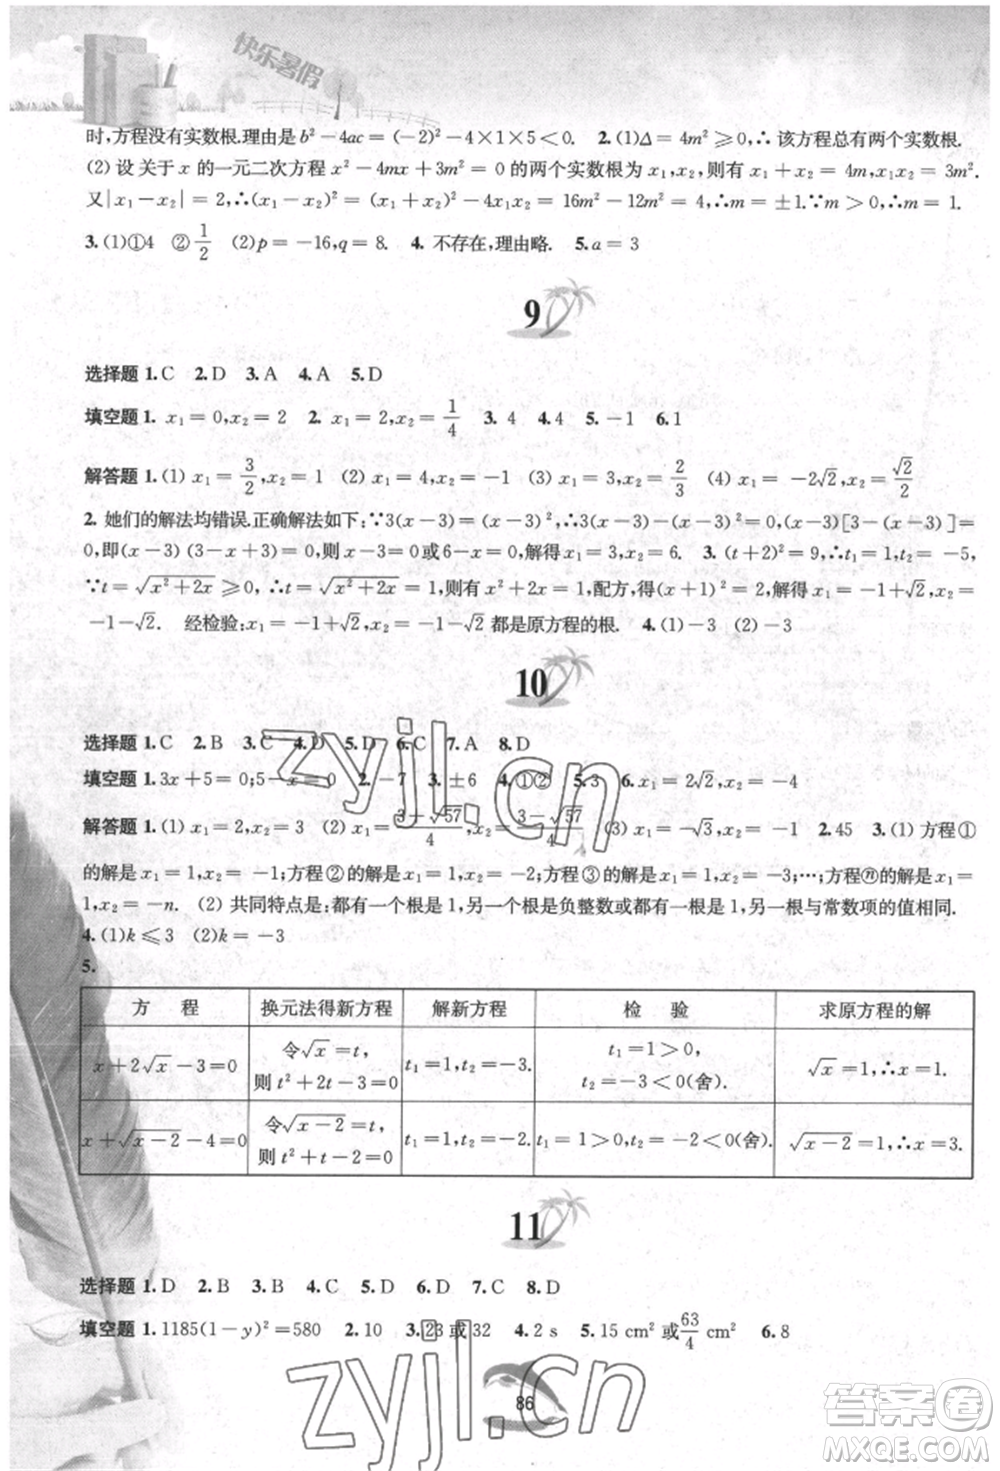 快乐暑假
时,方程没有实数根.理由是b²－4ac＝(－2)²－4×1×5＜0. 2.(1)Δ＝4m²≥0,∴该方程总有两个实数根.
(2)设关于x的一元二次方程x²－4mx＋3m²＝0的两个实数根为x₁,x₂,则有x₁＋x₂＝4m,x₁x₂＝3m².
又|x₁－x₂|＝2,∴(x₁－x₂)²＝(x₁＋x₂)²－4x₁x₂＝16m²－12m²＝4,∴m＝±1.∵m＞0,∴m＝1.
3.(1)①4 ②1/2 (2)p＝－16,q＝8. 4. 不存在,理由略. 5.a＝3
9
选择题 1.C 2.D 3.A 4.A 5.D
填空题 1. x₁＝0,x₂＝2 2. x₁＝2,x₂＝1/4 3. 4 4.4 5.－1 6.1
解答题 1.(1) x₁＝3/2,x₂＝1 (2) x₁＝4,x₂＝－1 (3) x₁＝3,x₂＝2/3 (4) x₁＝－2√2,x₂＝√2/2
2. 她们的解法均错误.正确解法如下:∵3(x－3)＝(x－3)²,∴3(x－3)－(x－3)²＝0,(x－3)[3－(x－3)]＝
0,即(x－3)(3－x＋3)＝0,则x－3＝0或6－x＝0,解得x₁＝3,x₂＝6. 3. (t＋2)²＝9,∴t₁＝1,t₂＝－5,
∵t＝√(x²＋2x)≥0,∴t＝√(x²＋2x)＝1,则有x²＋2x＝1,配方,得(x＋1)²＝2,解得x₁＝－1＋√2,x₂＝
－1－√2. 经检验:x₁＝－1＋√2,x₂＝－1－√2都是原方程的根. 4.(1)－3 (2)－3
10
选择题 1.C 2.B 3.C 4.D 5.D 6.C 7.A 8.D
填空题 1.3x＋5＝0;5－x＝0 2.－7 3.±6 4.①② 5.3 6.x₁＝2√2,x₂＝－4
解答题 1.(1) x₁＝2,x₂＝3 (2) x₁＝(3－√57)/4,x₂＝(3－√57)/4 (3) x₁＝－√3,x₂＝－1 2.45 3.(1)方程①
的解是x₁＝1,x₂＝－1;方程②的解是x₁＝1,x₂＝－2;方程③的解是x₁＝1,x₂＝－3;…;方程ⓝ的解是x₁＝
1,x₂＝－n. (2) 共同特点是:都有一个根是1,另一个根是负整数或都有一个根是1,另一根与常数项的值相同.
4.(1)k≤3 (2)k＝－3
5.
方 程 换元法得新方程 解新方程 检 验 求原方程的解
x＋2√x－3＝0 令√x＝t,则t²＋2t－3＝0 t₁＝1,t₂＝－3. t₁＝1＞0,t₂＝－3＜0(舍). √x＝1,∴x＝1.
x＋√(x－2)－4＝0 令√(x－2)＝t,则t²＋t－2＝0 t₁＝1,t₂＝－2. t₁＝1＞0,t₂＝－2＜0(舍). √(x－2)＝1,∴x＝3.
11
选择题 1.D 2.B 3.B 4.C 5.D 6.D 7.C 8.D
填空题 1.1185(1－y)²＝580 2.10 3.23或32 4.2 s 5.15 cm²或63/4 cm² 6.8
86
zyjl.cn
zyjl.cn
答案卷
MXQE.COM